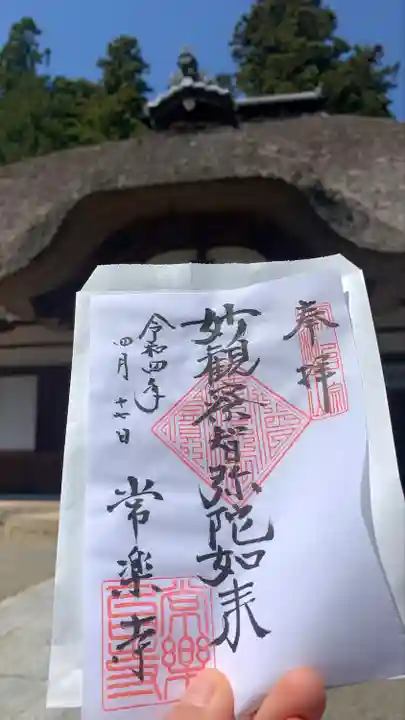 奉拝
妙観察智弥陀如来
令和四年
四月十七日
常楽寺
常樂